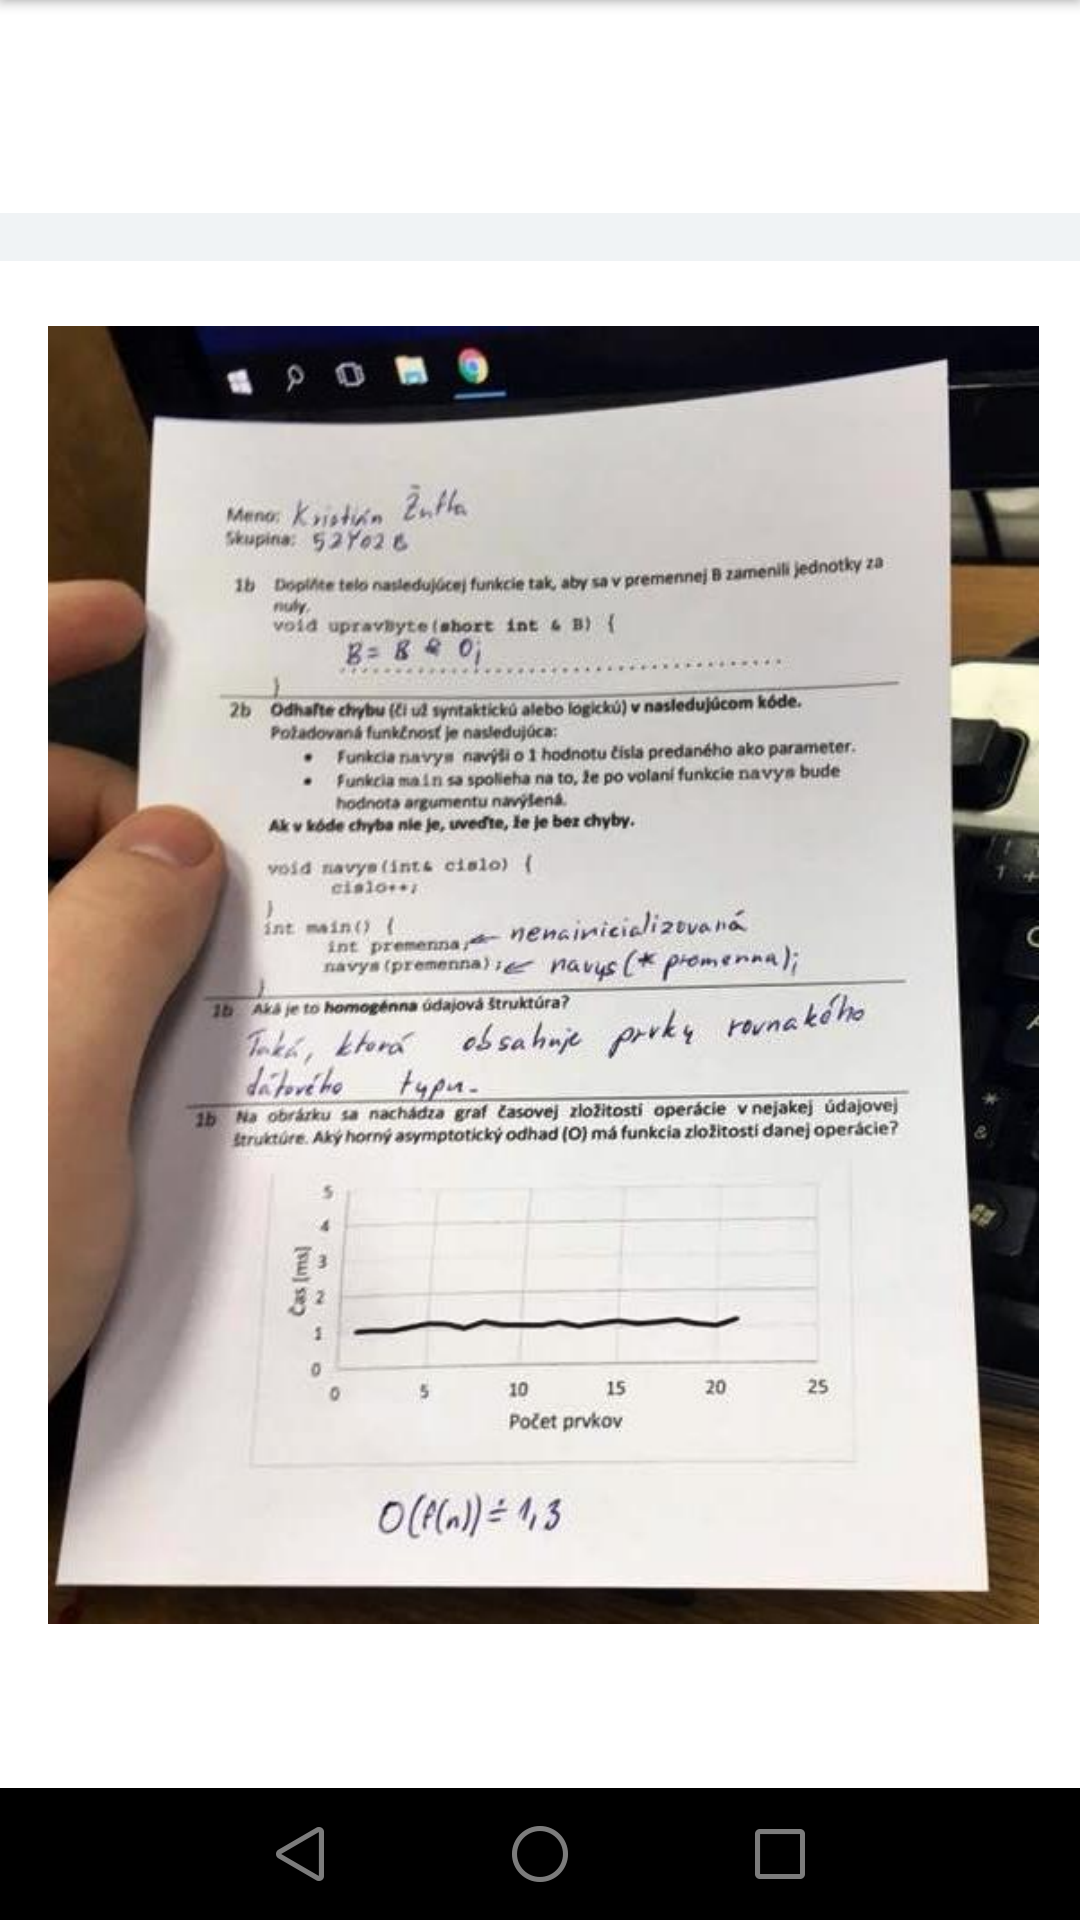 Meno: Kristián Žutta
Skupina: 52Y02B
1b Doplňte telo nasledujúcej funkcie tak, aby sa v premennej B zamenili jednotky za
nuly.
void upravByte(short int & B) {
B = B & 0;
}
2b Odhaľte chybu (či už syntaktickú alebo logickú) v nasledujúcom kóde.
Požadovaná funkčnosť je nasledujúca:
• Funkcia navys navýši o 1 hodnotu čísla predaného ako parameter.
• Funkcia main sa spolieha na to, že po volaní funkcie navys bude
hodnota argumentu navýšená.
Ak v kóde chyba nie je, uveďte, že je bez chyby.
void navys(int& cislo) {
cislo++;
}
int main() {
int premenna; ← nenainicializovaná
navys(premenna); ← navys(* premenna);
}
1b Aká je to homogénna údajová štruktúra?
Taká, ktorá obsahuje prvky rovnakého
dátového typu.
1b Na obrázku sa nachádza graf časovej zložitosti operácie v nejakej údajovej
štruktúre. Aký horný asymptotický odhad (O) má funkcia zložitosti danej operácie?
5
4
3
2
1
0
Čas [ms]
0 5 10 15 20 25
Počet prvkov
O(f(n)) ≐ 1,3